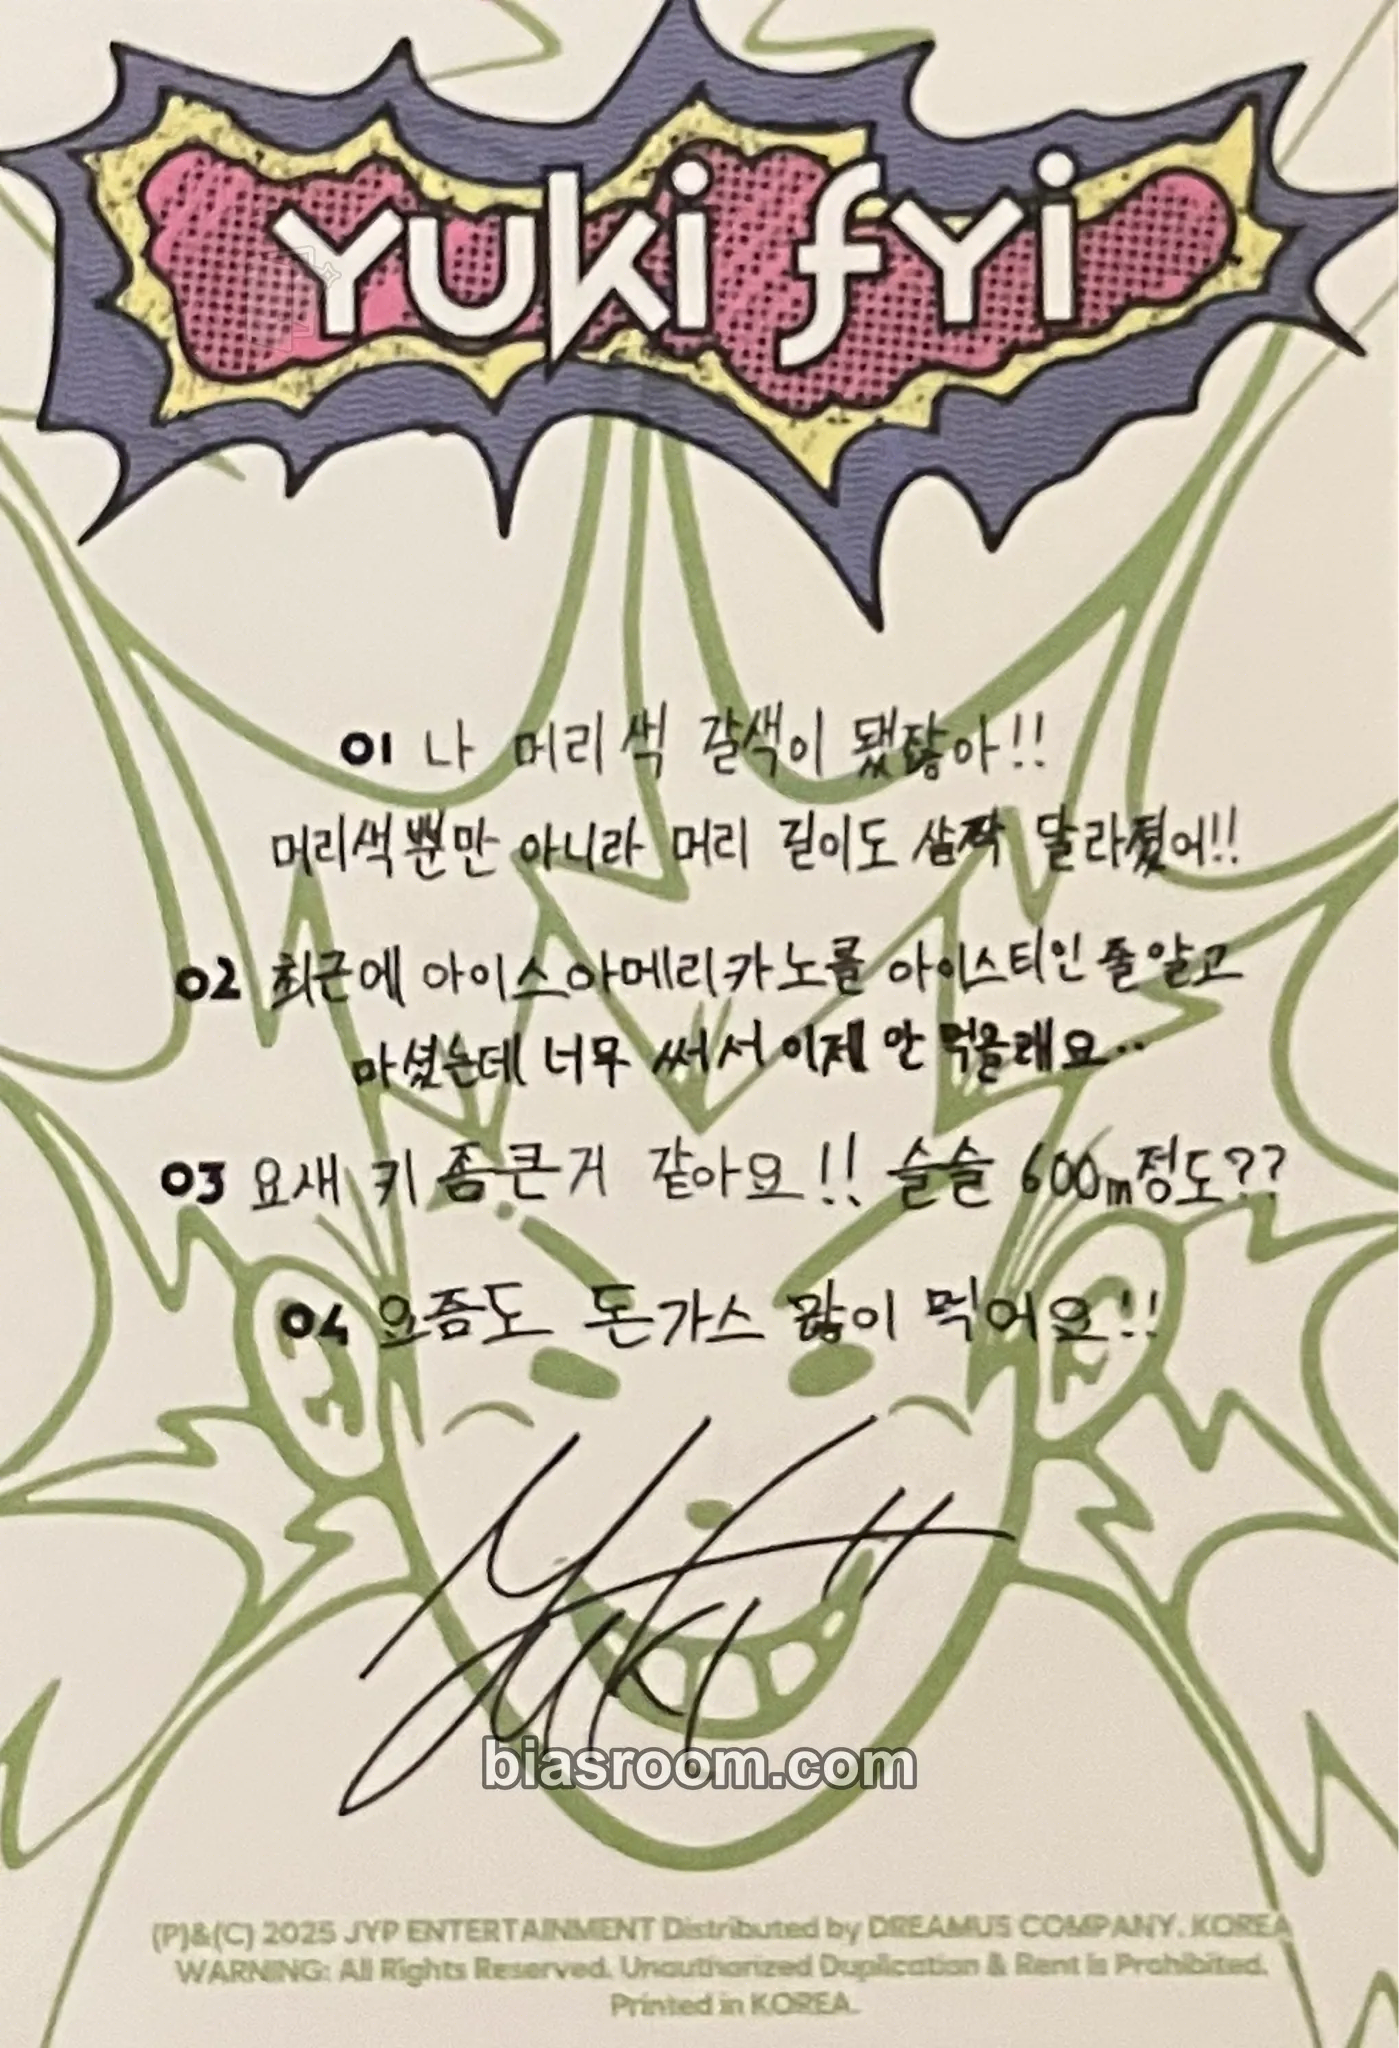 Yuki fyi
01 나 머리색 갈색이 됐잖아!!
머리색뿐만 아니라 머리 길이도 살짝 달라졌어!!
02 최근에 아이스아메리카노를 아이스티인 줄 알고
마셨는데 너무 써서 이제 안 먹을래요..
03 요새 키 좀 큰거 같아요!! 슬슬 600m정도??
04 요즘도 돈가스 많이 먹어요!!
YUKI
biasroom.com
(P)&(C) 2025 JYP ENTERTAINMENT Distributed by DREAMUS COMPANY. KOREA
WARNING: All Rights Reserved. Unauthorized Duplication & Rent is Prohibited.
Printed in KOREA.